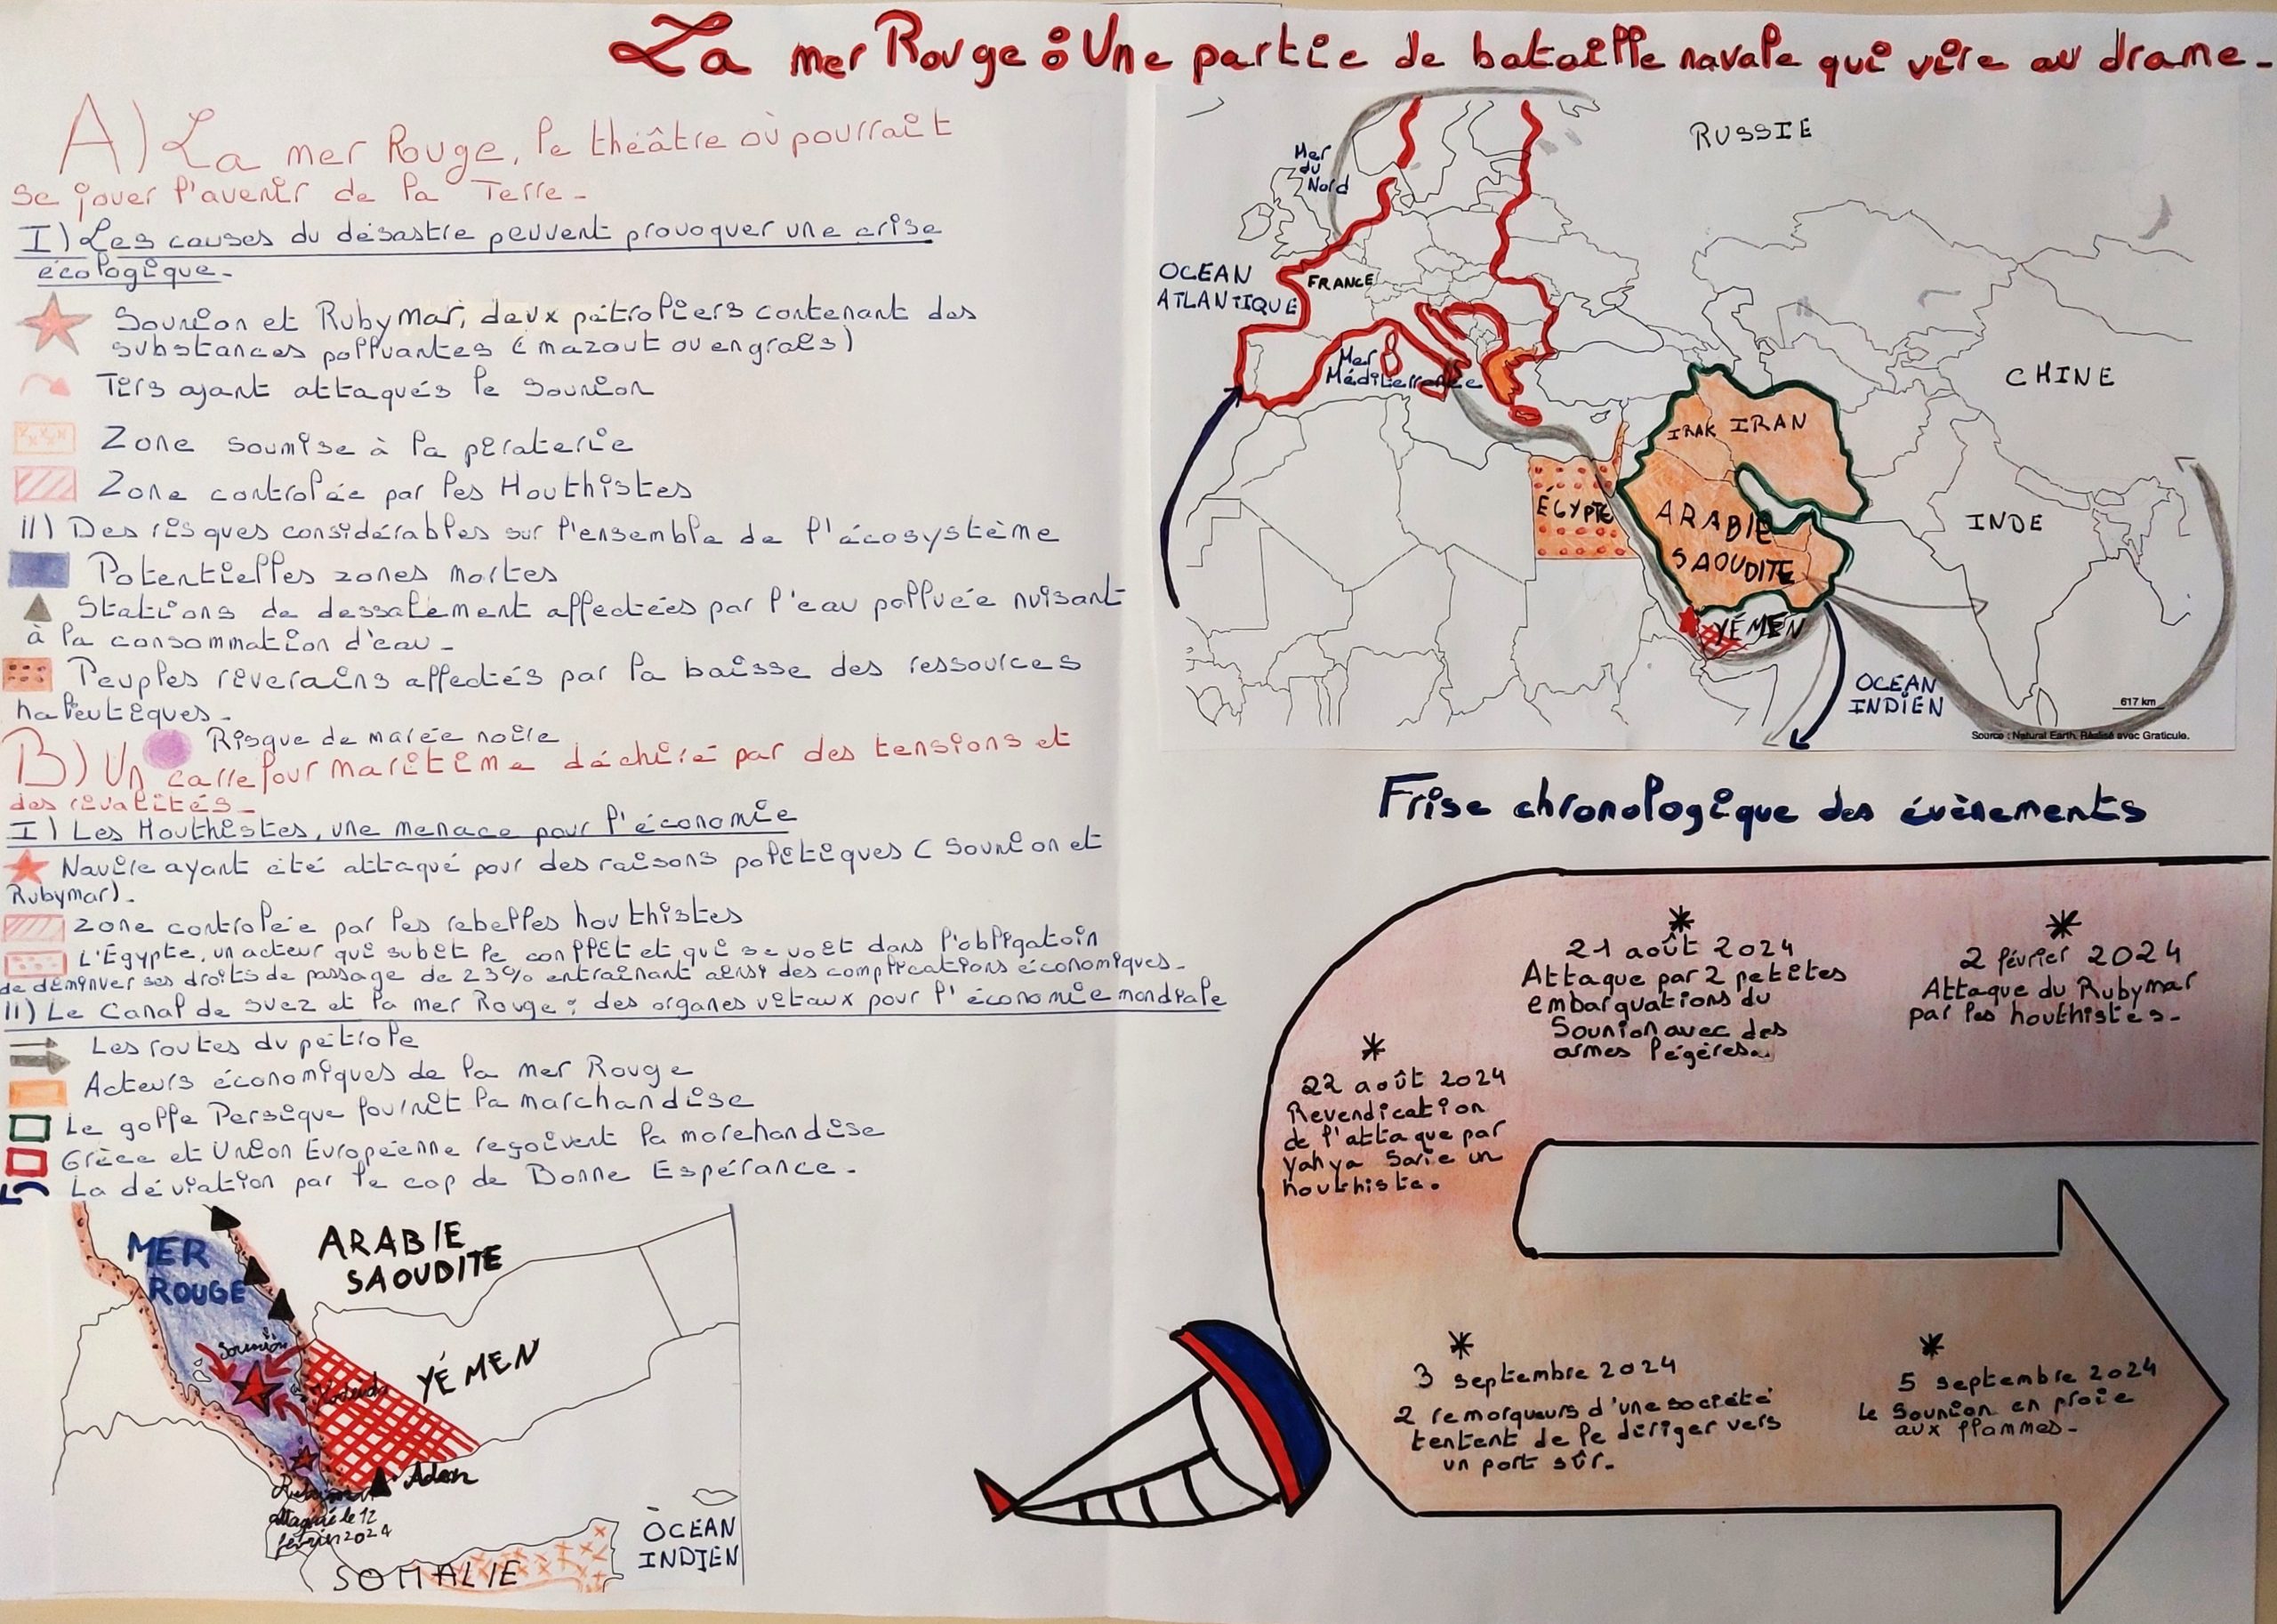 La mer Rouge : Une partie de bataille navale qui vire au drame.
A) La mer Rouge, le théâtre où pourrait
se jouer l'avenir de la Terre.
I) Les causes du désastre peuvent provoquer une crise
écologique.
Sounion et Rubymar, deux pétroliers contenant des
substances polluantes (mazout ou engrais)
Tirs ayant attaqués le Sounion
Zone soumise à la piraterie
Zone controlée par les Houthistes
II) Des risques considérables sur l'ensemble de l'écosystème
Potentielles zones mortes
Stations de dessalement affectées par l'eau polluée nuisant
à la consommation d'eau.
Peuples riverains affectés par la baisse des ressources
halieutiques.
Risque de marée noire
B) Un carrefour maritime déchiré par des tensions et
des rivalités.
I) Les Houthistes, une menace pour l'économie
Navire ayant été attaqué pour des raisons politiques (Sounion et
Rubymar).
Zone controlée par les rebelles houthistes
L'Égypte, un acteur qui subit le conflit et qui se voit dans l'obligatoin
de diminuer ses droits de passage de 23% entraînant ainsi des complications économiques.
II) Le Canal de Suez et la mer Rouge : des organes vitaux pour l'économie mondiale
Les routes du pétrole
Acteurs économiques de la mer Rouge
Le golfe Persique fournit la marchandise
Grèce et Union Européenne reçoivent la marchandise
La déviation par le cap de Bonne Espérance.
MER
ROUGE
ARABIE
SAOUDITE
YÉMEN
Sounion
Aden
attaqué le 12
février 2024
SOMALIE
OCEAN
INDIEN
RUSSIE
Mer
du
Nord
OCEAN
ATLANTIQUE
FRANCE
Mer
Méditerranée
CHINE
IRAK IRAN
ÉGYPTE
ARABIE
SAOUDITE
INDE
YÉMEN
OCEAN
INDIEN
617 km
Source : Natural Earth. Réalisé avec Graticule.
Frise chronologique des évènements
2 février 2024
Attaque du Rubymar
par les houthistes.
21 août 2024
Attaque par 2 petites
embarquations du
Sounion avec des
armes légères.
22 août 2024
Revendication
de l'attaque par
Yahya Sarie un
houthiste.
3 septembre 2024
2 remorqueurs d'une société
tentent de le diriger vers
un port sûr.
5 septembre 2024
Le Sounion en proie
aux flammes.